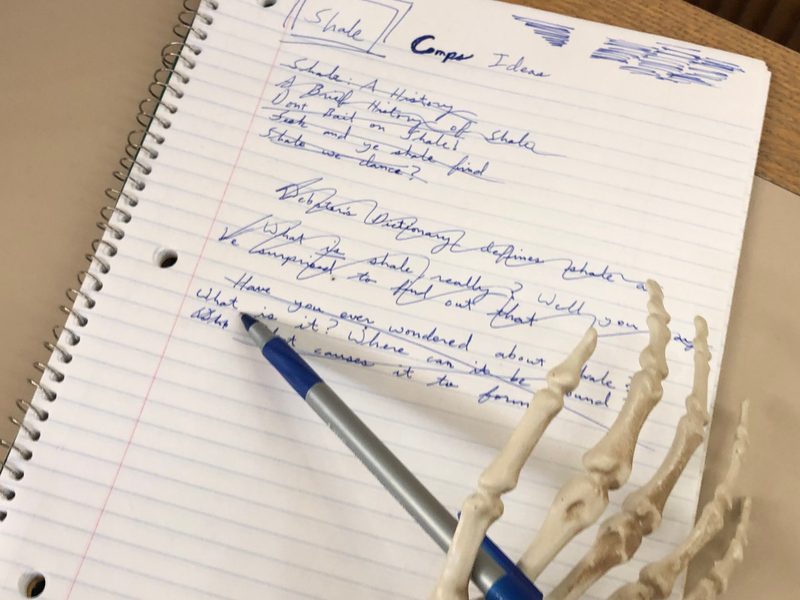 Shale
Comps Ideas
Shale: A History
A Brief History of Shale
Dont Bail on Shale!
Seek and ye shale find
Shale we dance?
Webster's Dictionary defines shale a
What is shale, really? Well you may
be surprised to find out that
Have you ever wondered about shale?
What is it? Where can it be found
what causes it to form